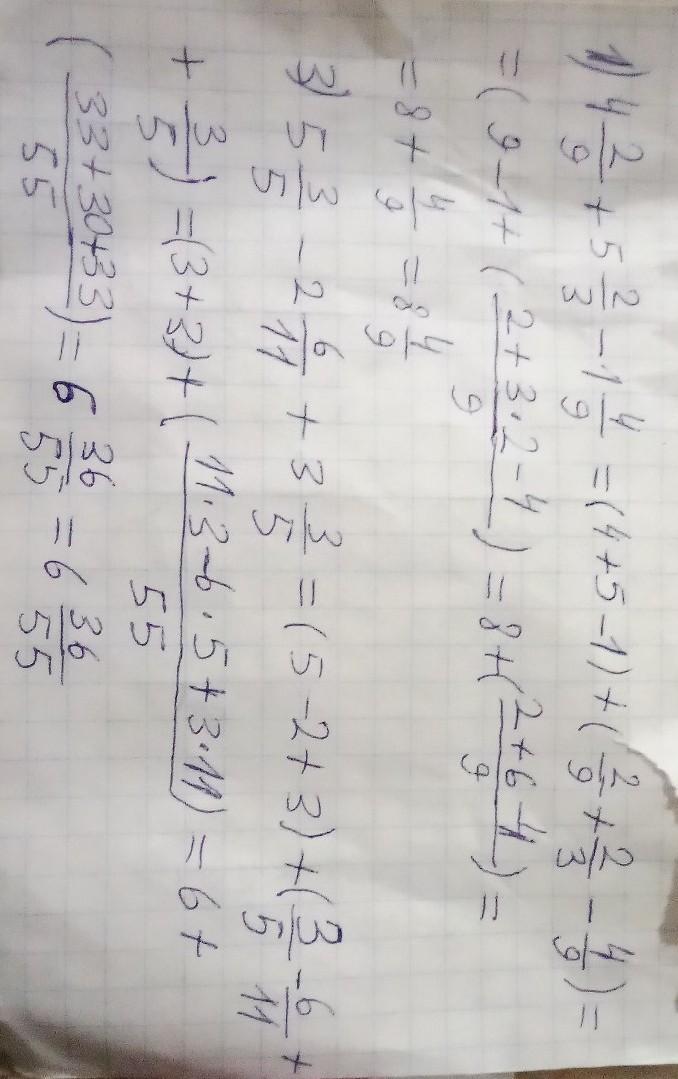 1) 4 2/9 + 5 2/3 - 1 4/9 = (4+5-1) + (2/9 + 2/3 - 4/9) =
= (9-1+ ((2+3·2-4)/9) = 8+((2+6-4)/9) =
= 8 + 4/9 = 8 4/9
3) 5 3/5 - 2 6/11 + 3 3/5 = (5-2+3) + (3/5 - 6/11 +
+ 3/5) = (3+3) + ((11·3-6·5+3·11)/55) = 6+
((33+30+33)/55) = 6 36/55 = 6 36/55